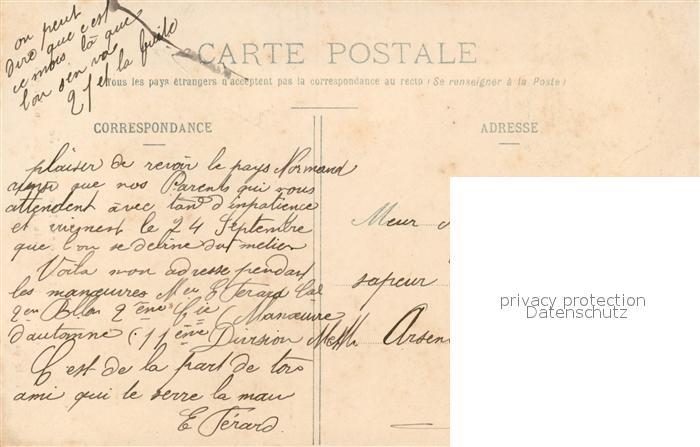 on peut
dire que c'est
ce mois là que
l'on s'en va
21 et la fuite
CARTE POSTALE
Tous les pays étrangers n'acceptent pas la correspondance au recto (Se renseigner à la Poste)
CORRESPONDANCE
plaisir de revoir le pays Normand
que nos Parents qui nous
attendent avec tant d'inpatience
et viement le 24 Septembre
que l'on se du metier
Voila mon adresse pendant
les manœuvres Meu E Férard Cal
9en Btlon 9ème Cie (Manœuvre
d'automne (11ème Division M et M
C'est de la part de ton
ami qui te serre la mau
E Férard
ADRESSE
Meur
sapeur
Arsen
privacy protection
Datenschutz